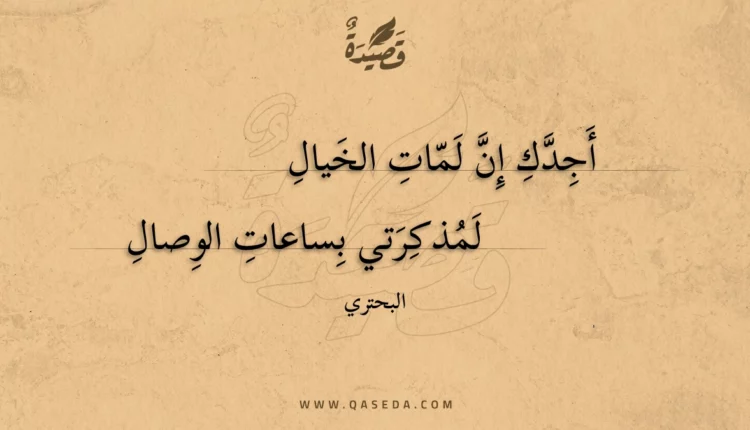 قَصِيدَةٌ
أَجِدَّكِ إِنَّ لَمّاتِ الخَيالِ
لَمُذكِرَتي بِساعاتِ الوِصالِ
البحتري
WWW.QASEDA.COM